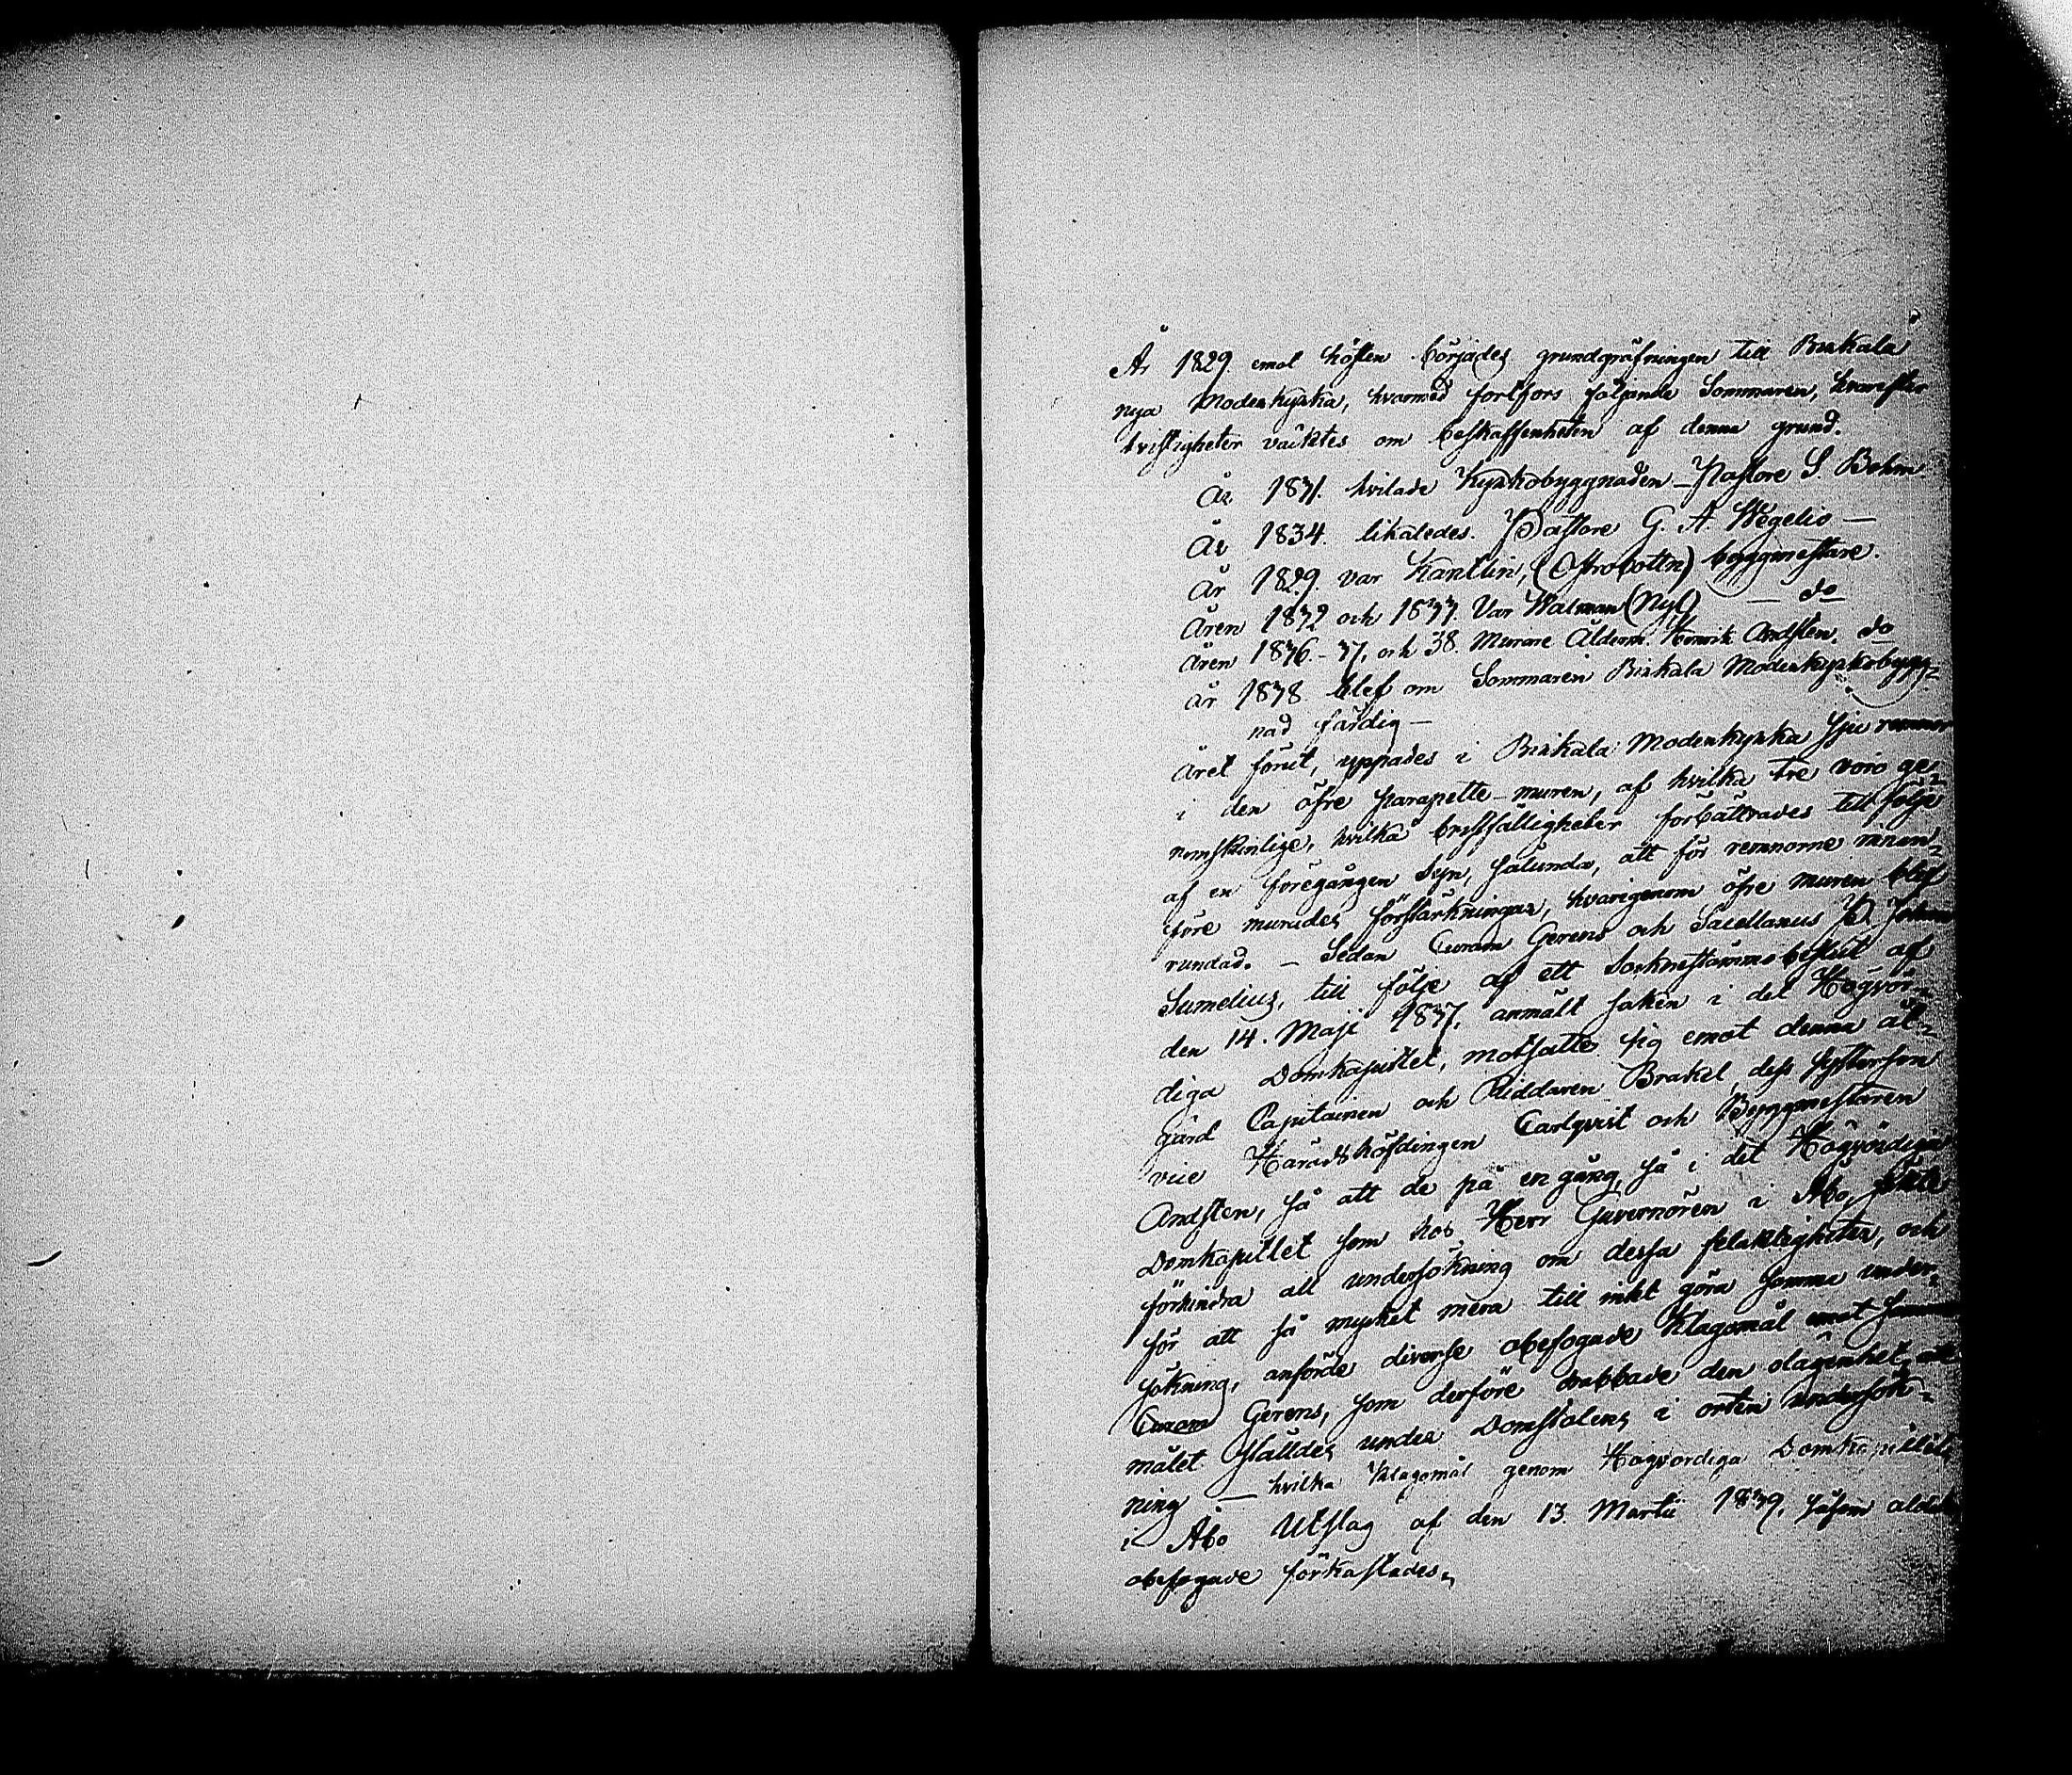 År 1829 emot hösten börjades grundgräfningen till Birkala
nya Moderkyrka, hvarmed fortfors följande Sommaren, hvarefter
tvistigheter väcktes om beskaffenheten af denna grund.
År 1831. hvilade Kyrkobyggnaden – Pastore S. Bohm.
År 1834. likaledes. Pastore G. A. Wegelio —
År 1829. var Kantlin, (Ostrobottn) byggmestare.
Åren 1832 och 1833. Var Walman (Nyl) — do
Åren 1836. – 37. och 38. Murare Ålderm. Henrik Andsten. do
År 1838 blef om Sommaren Birkala Moderkyrkobygg=
nad färdig —
Året förut, yppades i Birkala Moderkyrka sju remnor
i den öfre parapette-muren, af hvilka tre voro ge=
nomskinlige, hvilka bristfälligheter förbättrades till följe
af en föregången Syn, sålunda, att för remnorne innan=
före murades förstärkningar, hvarigenom öfre muren blef
rundad. – Sedan Curam Gerens och Sacellanus D. Johan
Sumelius, till följe af ett Socknestämmobeslut af
den 14. Maji 1837, anmält saken i det Högvör=
diga Domkapitlet, motsatte sig emot denna åt=
gärd Capitainen och Riddaren Brakel, dess systerson
vice Häradshöfdingen Carlqvist och Byggmestaren
Andsten, så att de på en gång, så i det Högvördiga
Domkapitlet som hos Herr Guvernören i Åbo, sökte
förhindra all undersökning om dessa felaktigheter, och
för att så mycket mera till intet göra samma under=
sökning, anförde diverse obefogade Klagomål emot samma
Curam Gerens, som derföre drabbade den olägenhet, att
målet ställdes under Domstolens i orten undersök=
ning — hvilka Klagomål genom Högvördiga Domkapitlets
i Åbo Utslag af den 13. Martii 1839, såsom aldeles
obefogade förkastades.